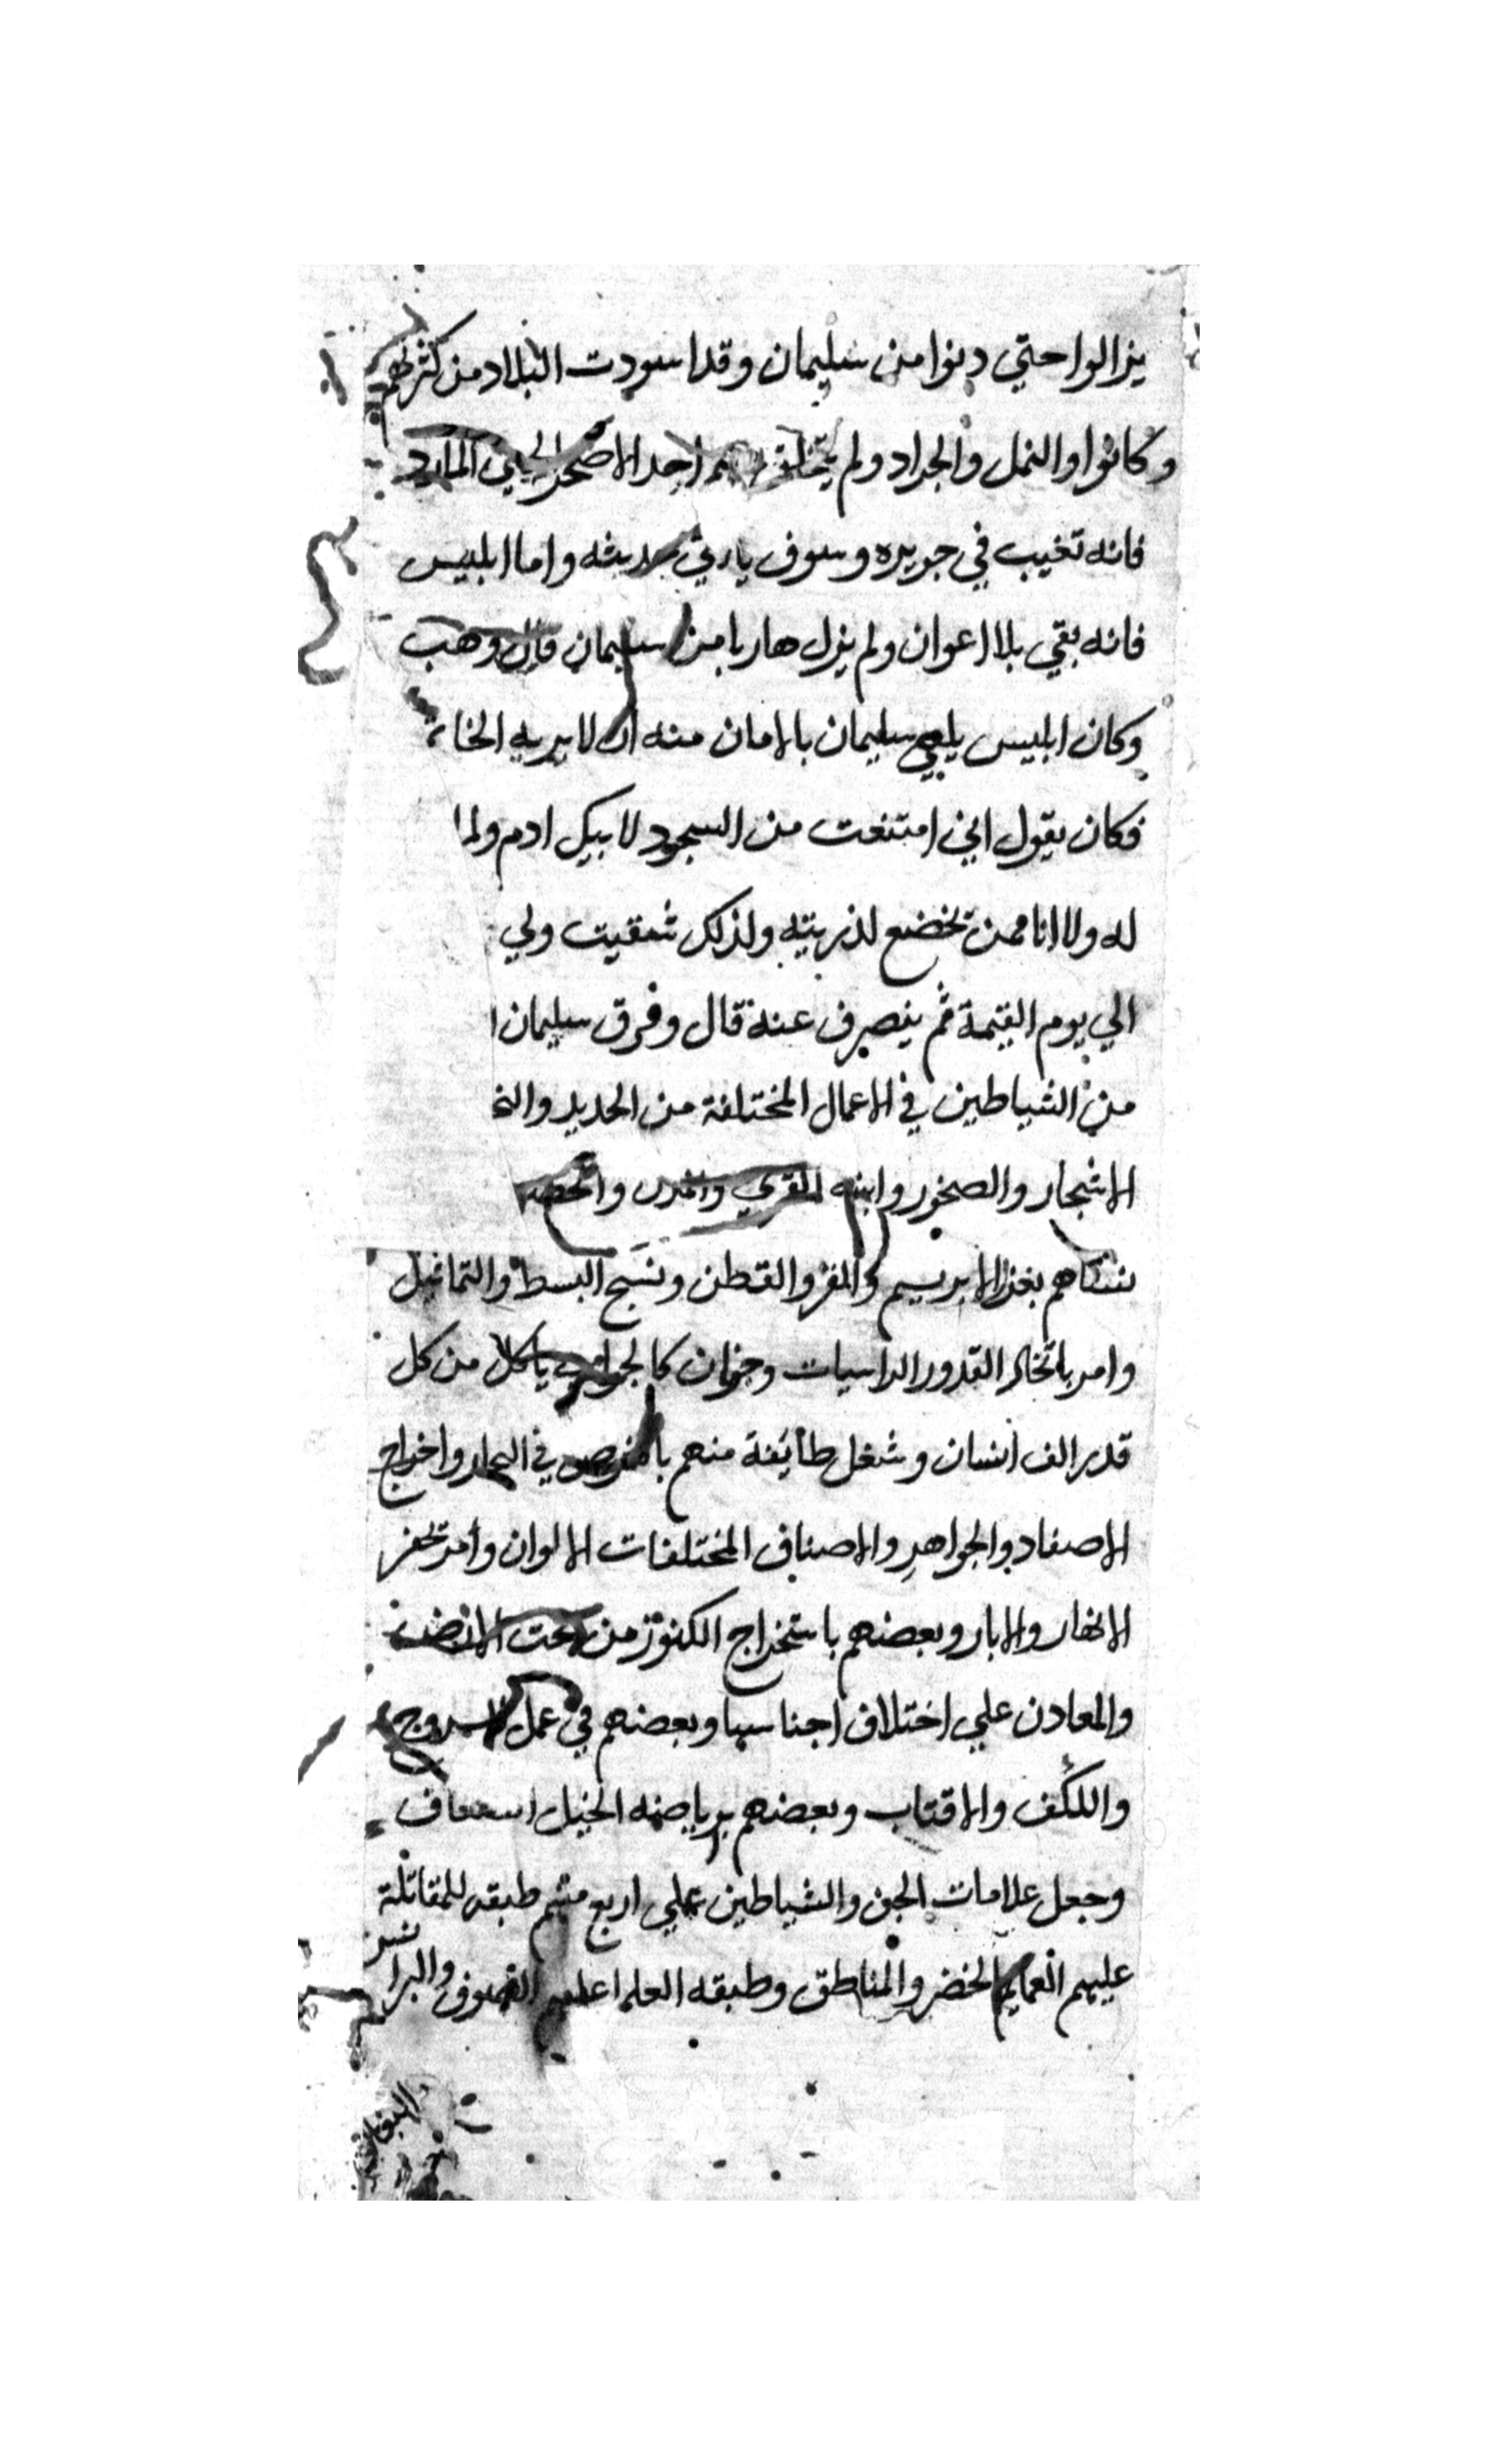 يزالوا حتي دنوا من سليمان وقد اسودت البلاد من كثرتهم
وكانوا والنمل والجراد ولم يتخلف احد الا صخر الجني المارد
فانه تغيب في جزيره وسوف ياتي حديثه واما ابليس
فانه بقي بلا اعوان ولم يزل هاربا من سليمان قال وهب
وكان ابليس يلقي سليمان بالامان منه ان لا يريه الخاتم
فكان يقول اني امتنعت من السجود لابيك ادم ولم ا
له ولا انا ممن يخضع لذريته ولذلك شقيت ولي
الي يوم القيمة ثم ينصرف عنه قال وفرق سليمان ا
من الشياطين في الاعمال المختلفة من الحديد والنحا
الاشجار والصخور وابنيه القري والمدن والحصو
نساهم بغزل الابريسم والقز والقطن ونسج البسط والتماثيل
وامر باتخاذ القدور الراسيات وجفان كالجواب ياكل من كل
قدر الف انسان وشغل طائفة منهم بالغوص في البحار واخراج
الاصفاد والجواهر والاصناف المختلفات الالوان وامر بحفر
الانهار والابار وبعضهم باستخراج الكنوز من تحت الارض
والمعادن علي اختلاف اجناسها وبعضهم في عمل السروج
واللكف والاقتاب وبعضهم برياضه الخيل
وجعل علامات الجن والشياطين علي اربع منهم طبقه للمقاتلة
عليهم العمايم الخضر والمناطق وطبقه العلما عليهم الصوف والبرانس